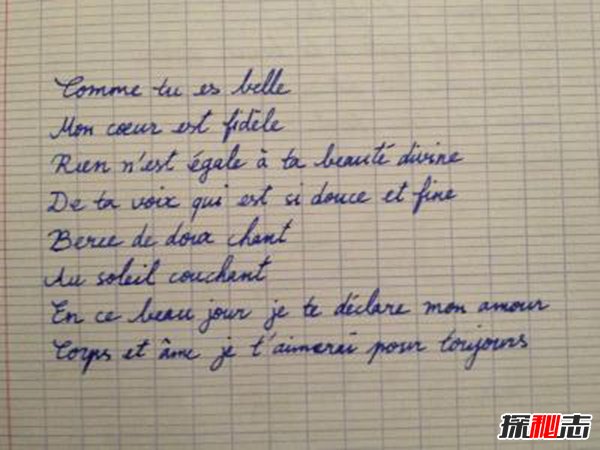 Comme tu es belle
Mon cœur est fidèle
Rien n'est égale à ta beauté divine
De ta voix qui est si douce et fine
Berce de doux chant
Au soleil couchant
En ce beau jour je te déclare mon amour
Corps et âme je t'aimerai pour toujours
探秘志